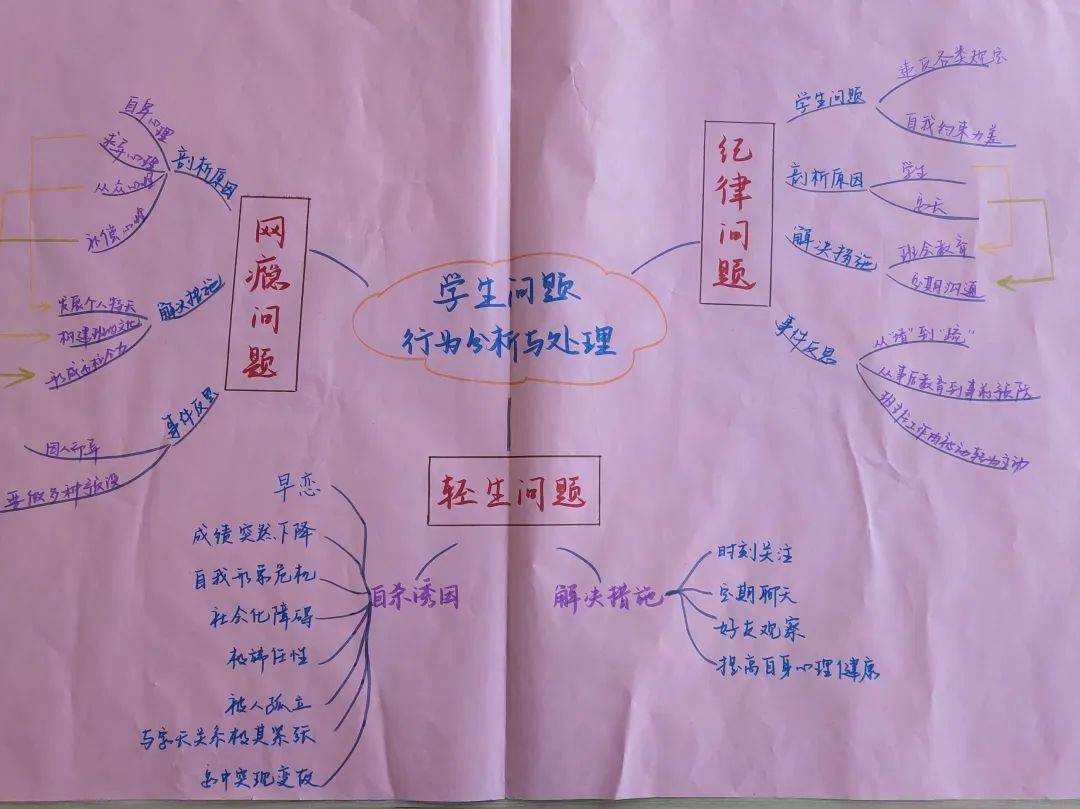 学生问题
行为分析与处理
网瘾问题
剖析原因
自身心理
求异心理
从众心理
补偿心理
解决措施
发展个人特长
构建班级文化
形成家校合力
事件反思
因人而异
要做多种预设
纪律问题
学生问题
违反各类规定
自我约束力差
剖析原因
学生
家长
解决措施
班会教育
定期沟通
事件反思
从“堵”到“疏”
从事后教育到事前预防
班主任工作由被动转为主动
轻生问题
自杀诱因
早恋
成绩突然下降
自我形象危机
社会化障碍
极端任性
被人孤立
与家长关系极其紧张
家中突现变故
解决措施
时刻关注
定期聊天
好友观察
提高自身心理健康